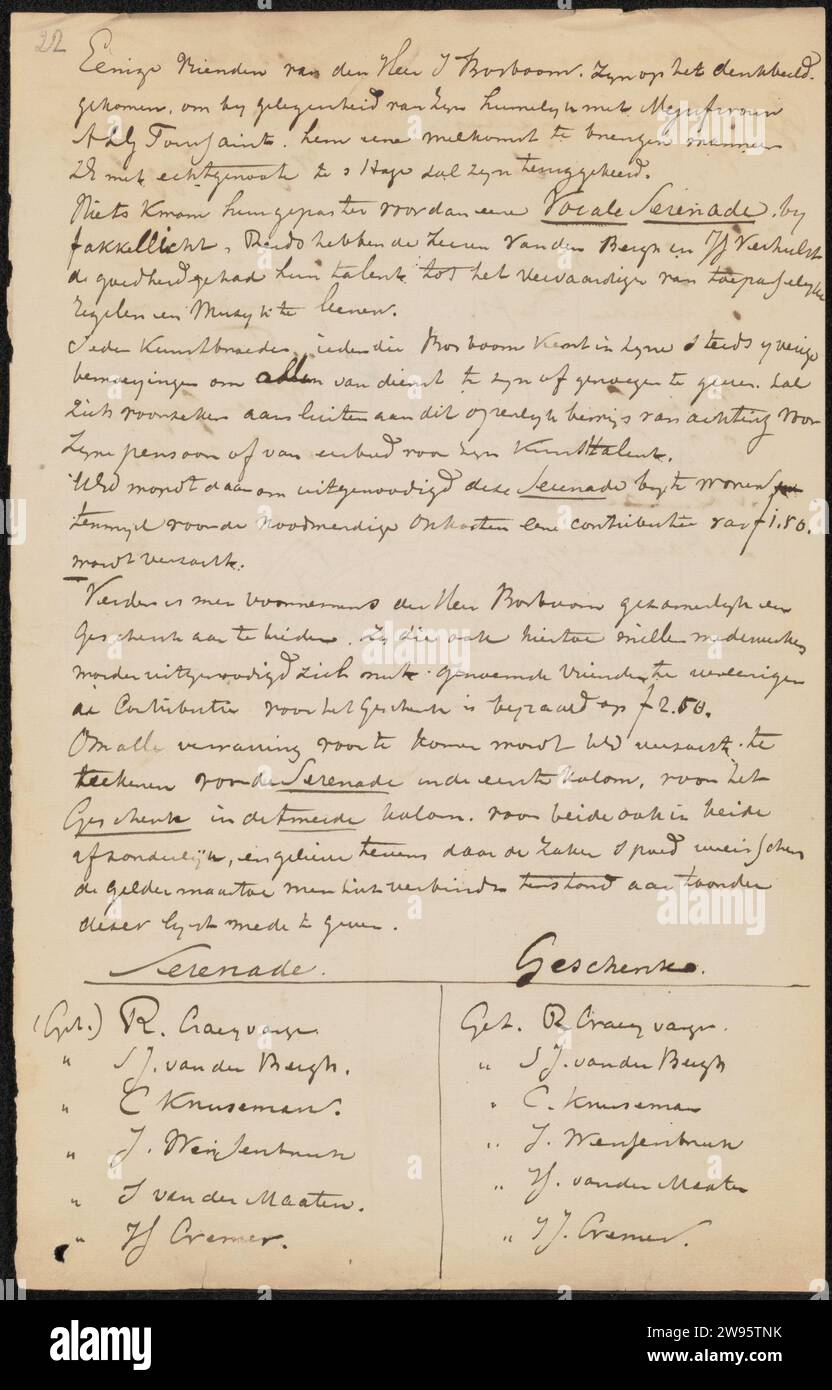 22
Eenige Vrienden van den Heer J Bosboom. zyn op het denkbeeld
gekomen, om by gelegenheid van zyn huwelyk met Mejufvrouw
A L G Toussaint. hem eene welkomst te brengen wanneer
ZE met echtgenoote te s Hage zal zyn teruggekeerd.
Niets kwam hun gepaster voor dan eene Vocale Serenade, by
fakkellicht, Reeds hebben de Heeren Van den Bergh en JJ Verhulst
de goedheid gehad hun talent tot het vervaardigen van toepasselyke
Regelen en Muzyk te leenen.
Ieder Kunstbroeder, ieder die Bosboom Kent in zyne steeds yverige
bemoeyingen om allen van dienst te zyn of genoegen te geven. zal
Zich voorzeker aansluiten aan dit openlyk bewys van achting voor
zyne persoon of van eerbied voor zyn Kunsttalent.
UEd wordt daarom uitgenoodigd deze Serenade by te wonen
terwyl voor de noodwendige Onkosten eene contributie van f 1.50.
wordt verzocht.
Verder is men voornemens den Heer Bosboom gezamenlyk een
Geschenk aan te bieden. Zy die ook hiertoe willen medewerken
worden uitgenoodigd zich met genoemde Vrienden te vereenigen
de Contributie voor het Geschenk is bepaald op f 2.50.
Om alle verwarring voor te komen wordt UEd verzocht te
teekenen voor de Serenade in de eerste kolom, voor het
Geschenk in de tweede kolom. voor beide ook in beide
afzonderlijk, en gelieve tevens daar de zaken spoed vereisschen
de gelden waartoe men zich verbindt terstond aan toonder
dezer lyst mede te geven.
Serenade. Geschenk.
(Get.) R. Craeyvanger Get. R Craeyvanger.
" S J. van den Bergh. " S J. van den Bergh
" C Kruseman. " C. Kruseman
" J. Weissenbruch " J. Weissenbruch
" J van der Maaten. " JJ. van der Maaten
" JJ Cremer. " JJ. Cremer.
alamy
alamy
Image ID: 2W95TNK
www.alamy.com